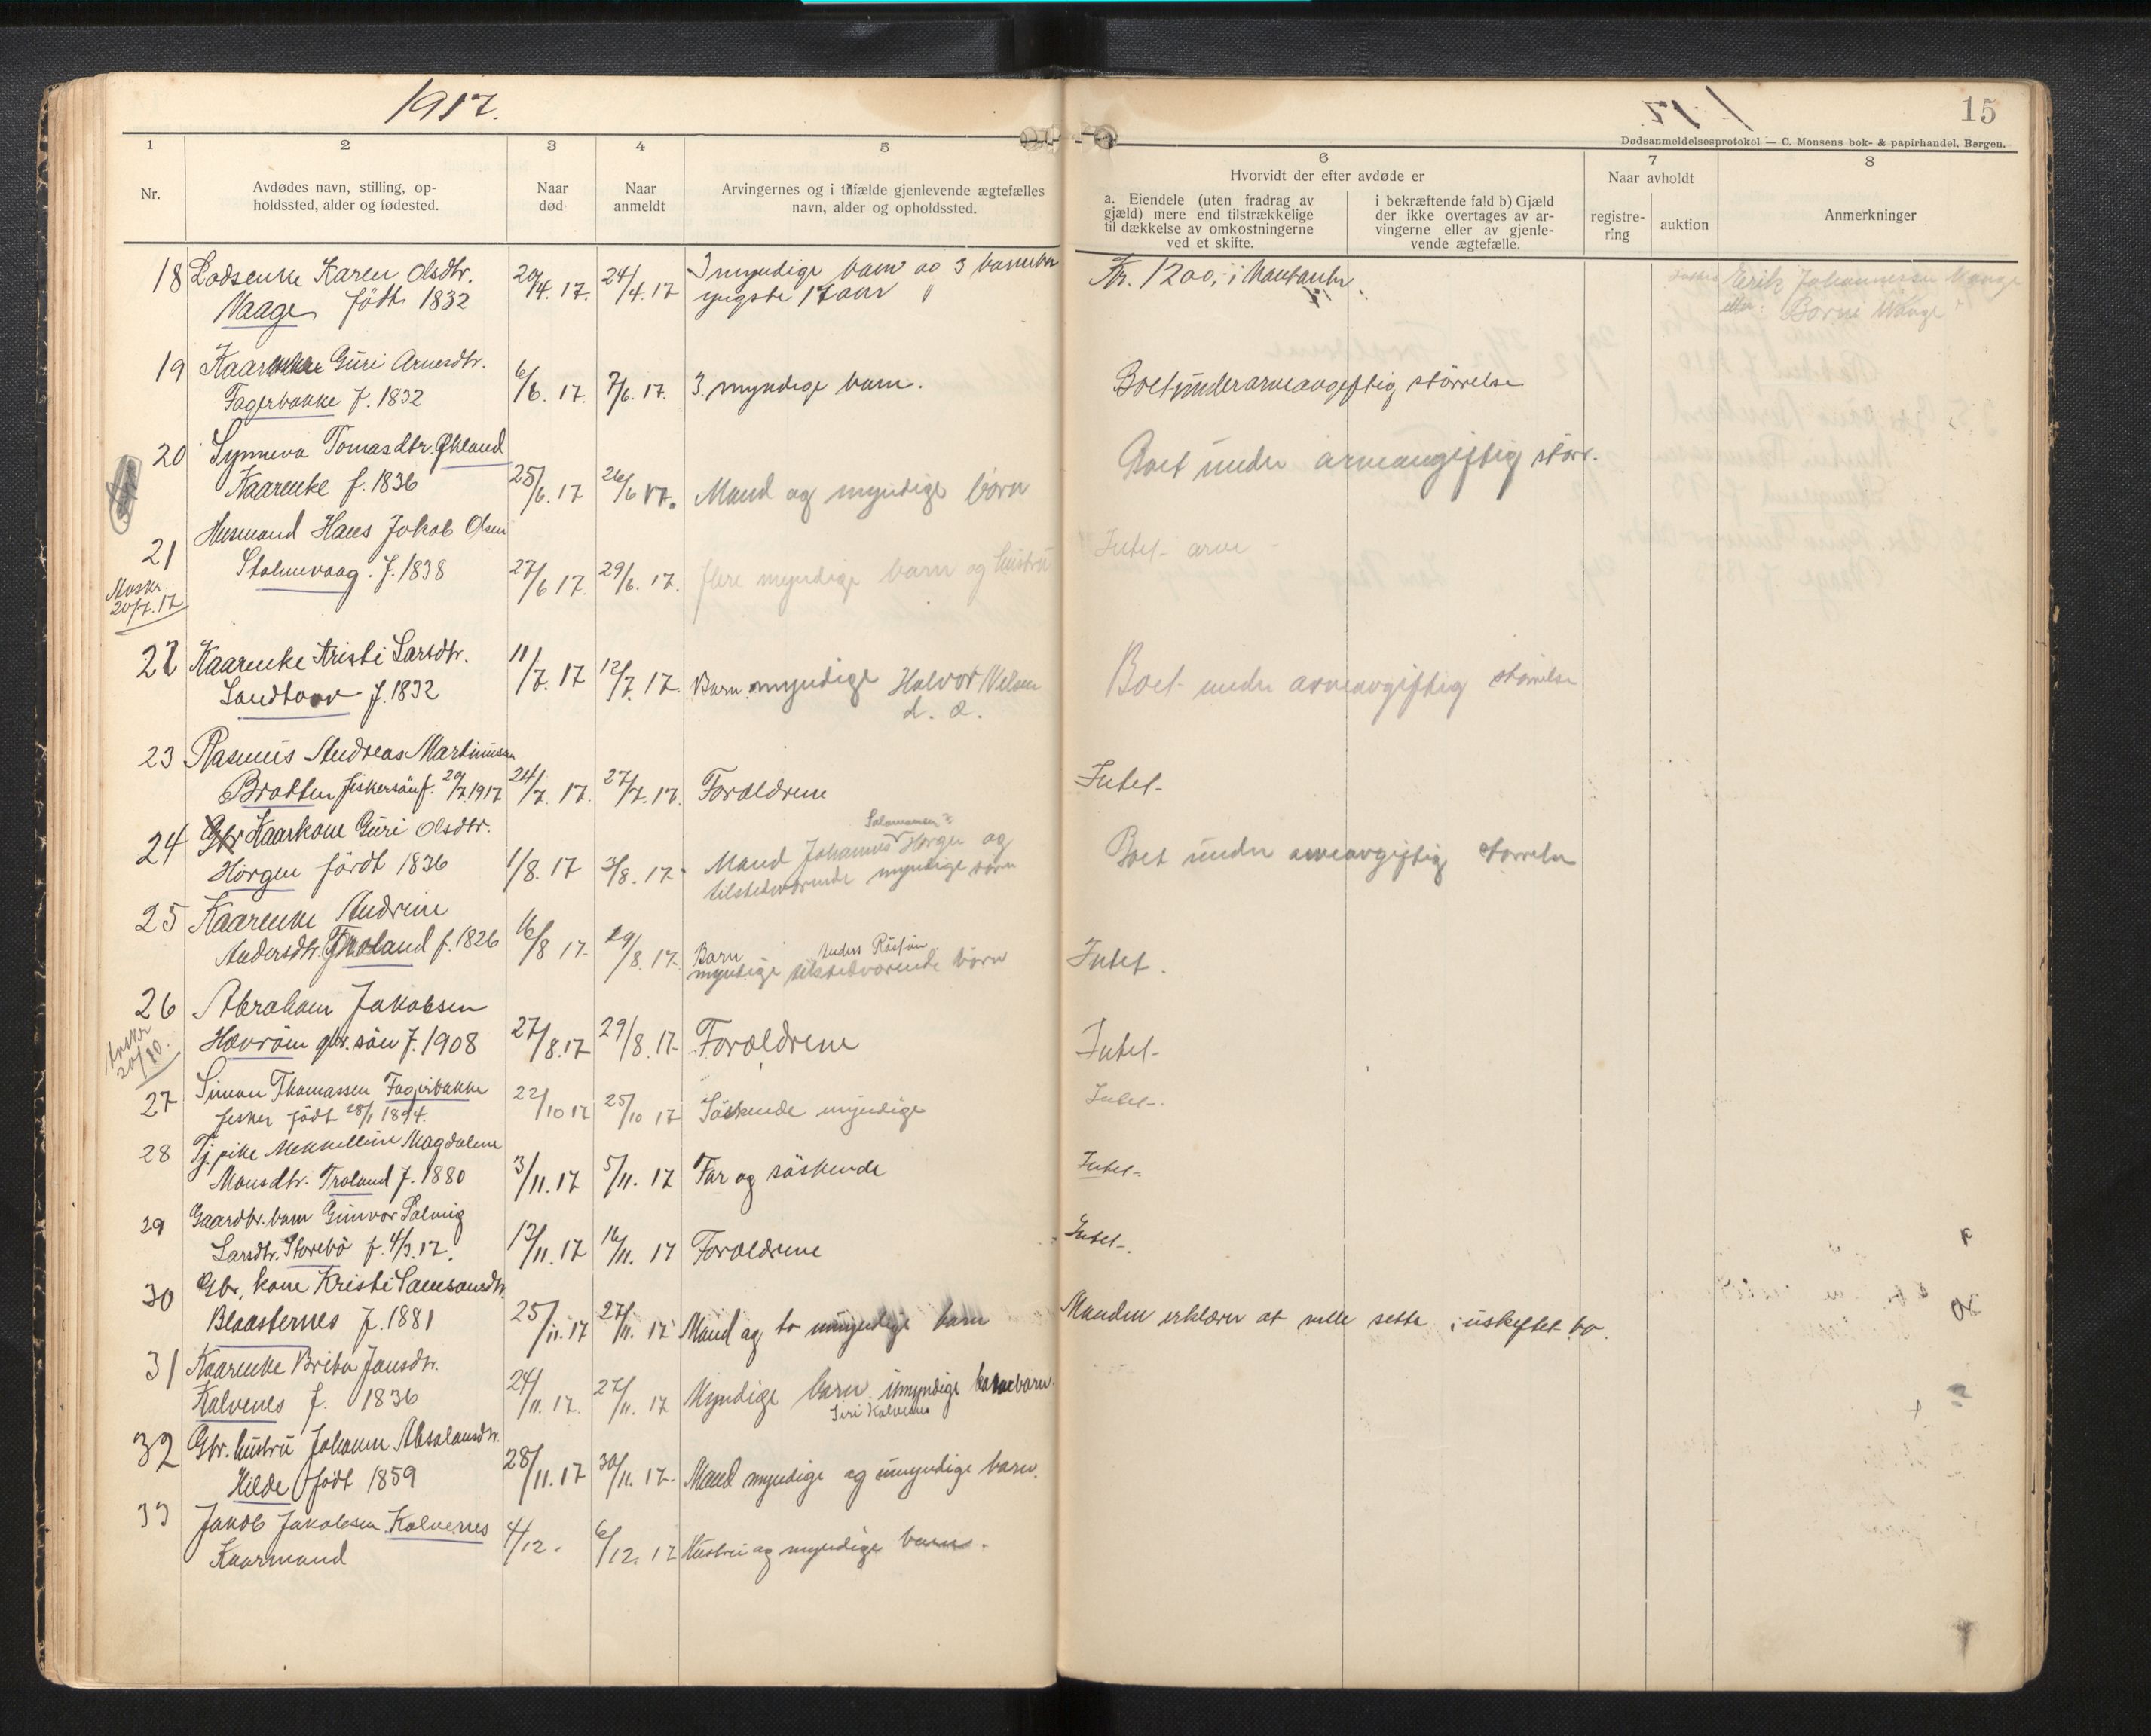 1917.
15
Dødsanmeldelsesprotokol — C. Monsens bok- & papirhandel, Bergen.
1
2
3
4
5
6
7
8
Nr.
Avdødes navn, stilling, op-
holdssted, alder og fødested.
Naar
død
Naar
anmeldt
Arvingernes og i tilfælde gjenlevende ægtefælles
navn, alder og opholdssted.
Hvorvidt der efter avdøde er
a. Eiendele (uten fradrag av
gjæld) mere end tilstrækkelige
til dækkelse av omkostningerne
ved et skifte.
i bekræftende fald b) Gjæld
der ikke overtages av ar-
vingerne eller av gjenle-
vende ægtefælle.
Naar avholdt
registre-
ring
auktion
Anmerkninger
18 Lodsenke Karen Olsdtr. 20/4. 17. 24/4. 17 3 myndige barn og 3 barnebar Kr. 1200,- i Erik Johannessen Vaage
Vaage født 1832 yngste 17 aar Vaage
19 Guri Arnesdtr. 6/6. 17. 7/6. 17. 3 myndige barn. Boet under arveavgiftig størrelse
Fagerbakke f. 1832
20 Synneva Tomasdtr. Økland Boet under arveavgiftig størr.
Kaarenke f. 1836 25/6. 17 26/6 17. Mand og myndige børn
21 Husmand Hans Jakob Olsen Intet
Stolmevaag. f. 1838 27/6 17. 29/6. 17. flere myndige barn og hustru
20/7. 17
22 Kaarenke Kristi Larsdtr. 11/7. 17 12/7. 17. Barn myndige Halvor Nelsen Boet under arveavgiftig størrelse
Sandtorv f. 1832 d. æ.
23 Rasmus Andreas Martinussen
Bratten fiskersøn f. 20/7. 1917 24/7. 17. 27/7. 17. Forældrene Intet-
24 Kaarkone Guri Olsdtr. Salamonsen
Horgen født 1836 1/8. 17 3/8. 17. Mand Johannes Horgen og Boet under arveavgiftig størrelse
tilstedeværende myndige børn
25 Kaarenke Andrine Barn Anders Røsjøen
Andersdtr. Troland f. 1826 16/8 17. 29/8. 17. myndige tilstedeværende børn Intet.
26 Abraham Jakobsen
Havrøen gbr. søn f. 1908 27/8. 17 29/8. 17. Forældrene Intet-
20/10.
27 Simon Thomassen Fagerbakke 22/10 17 25/10 17 Søskende myndige Intet-.
fisker født 28/1 1894.
28 Tj. pike Mekkelline Magdalene
Monsdtr. Troland f. 1880 3/11. 17 5/11. 17 Far og søskende Intet-.
29 Gaardbr. barn Gunvor Solveig
Larsdtr. Storebø f. 4/3. 17. 13/11. 17 16/11. 17 Forældrene Intet-.
30 Gbr. kone Kristi Samsonsdtr.
Blaasternes f. 1881 25/11. 17 27/11. 17 Mand og to umyndige barn Manden erklærer at ville sette i uskiftet bo.
31 Kaarenke Brita Jansdtr.
Kalvenes f. 1836 24/11. 17. 27/11. 17 Myndige barn umyndige barnebarn.
Siri Kalvenes
32 Gbr. hustru Johanne Absalonsdtr.
Hilde født 1859 28/11. 17 30/11. 17. Mand myndige og umyndige barn.
33 Jakob Jakobsen Kalvenes 4/12. 6/12. 17 Hustru og myndige barn.
Kaarmand